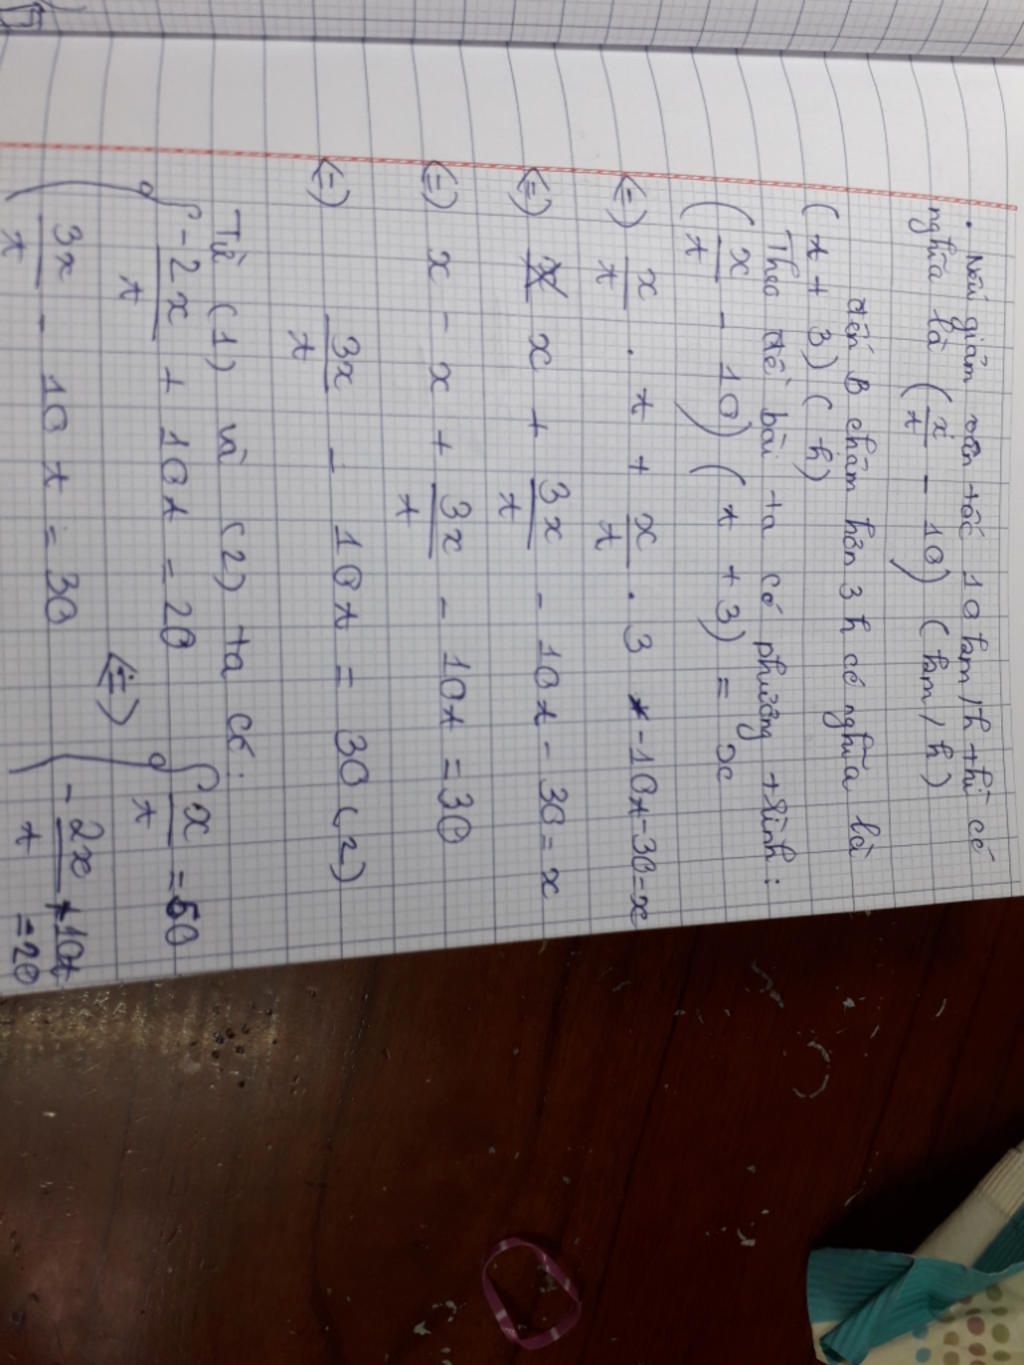 . Nếu giảm vận tốc 10 km/h thì có
nghĩa là (x/t - 10) (km/h)
đến B chậm hơn 3 h có nghĩa là
(t + 3) (h)
Theo đề bài ta có phương trình:
(x/t - 10) (t + 3) = x
(=) x/t . t + x/t . 3 - 10t - 30 = x
(=) x + 3x/t - 10t - 30 = x
(=) x - x + 3x/t - 10t = 30
(=) 3x/t - 10t = 30 (2)
Từ (1) và (2) ta có:
{ -2x/t + 10t = 20
{ 3x/t - 10t = 30
(=) { x/t = 50
{ -2x/t + 10t = 20